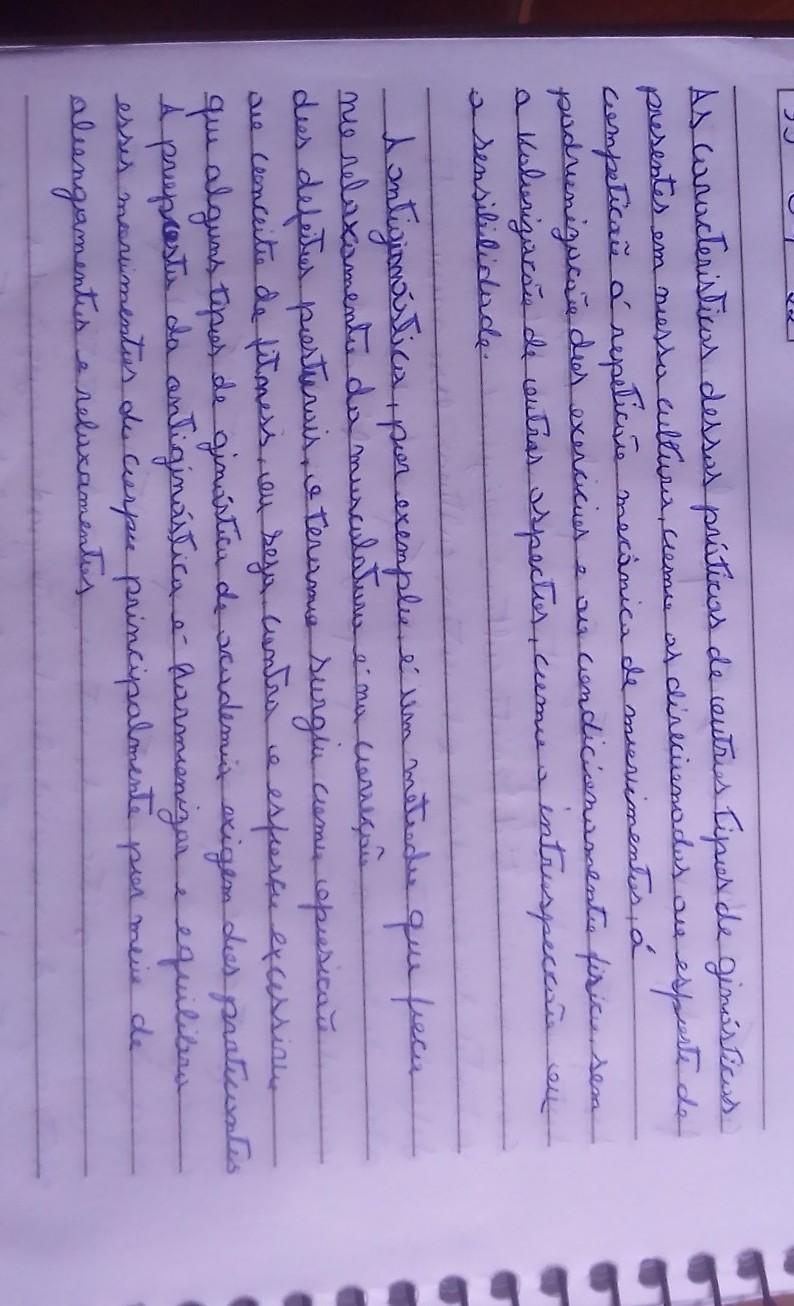 As caracteristicas dessas práticas de outros tipos de ginásticas
presentes em nossa cultura, como as direcionadas ao esporte de
competicão á repeticão mecânica de movimentos, á
padronização dos exercicios e ao condicionamento fisico, sem
a valorização de outros aspectos, como a introspeccão ou
a sensibilidade.
A antiginástica, por exemplo, é um metodo que foca
no relaxamento da musculatura é na correção
dos defeitos posturais, o teramo surgiu como oposicão
ao conceito de fitness, ou seja contra o esforço excessivo
que alguns tipos de ginástica de academia exigem dos praticantes
A proposta da antiginástica é harmonizar e equilibrar
esses movimentos do corpo principalmente por meio de
alongamentos e relaxamentos